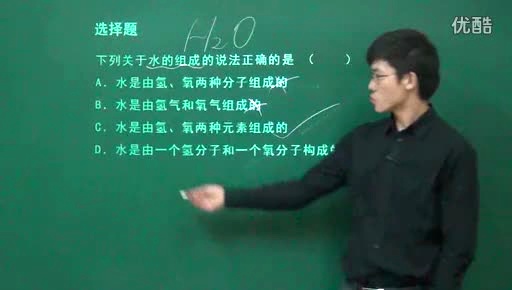 优酷
选择题
H₂O
下列关于水的组成的说法正确的是 （ ）
A. 水是由氢、氧两种分子组成的
B. 水是由氢气和氧气组成的
C. 水是由氢、氧两种元素组成的
D. 水是由一个氢分子和一个氧分子构成的